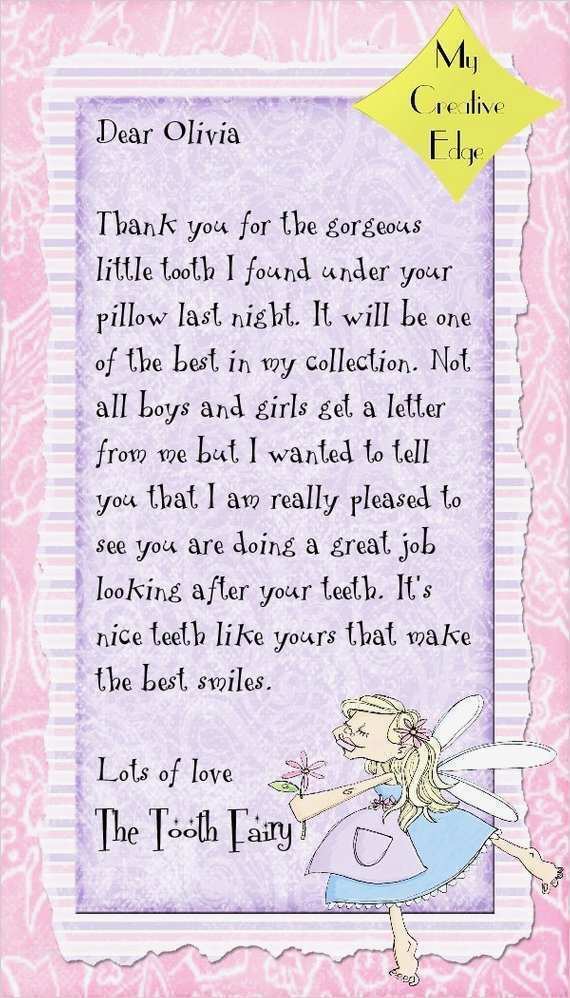 My
Creative
Edge
Dear Olivia
Thank you for the gorgeous
little tooth I found under your
pillow last night. It will be one
of the best in my collection. Not
all boys and girls get a letter
from me but I wanted to tell
you that I am really pleased to
see you are doing a great job
looking after your teeth. It's
nice teeth like yours that make
the best smiles.
Lots of love
The Tooth Fairy